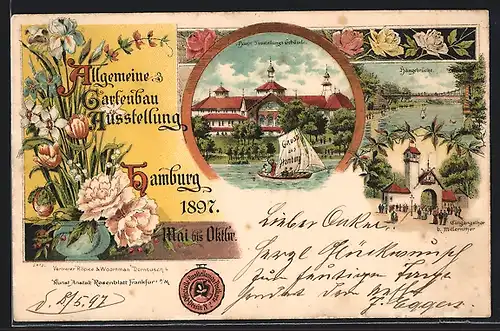 Allgemeine
Gartenbau
Ausstellung
Hamburg
1897.
Mai bis Oktbr.
Haupt-Ausstellungs-Gebäude.
Hängebrücke.
Gruss
aus
Hamburg
Eingangsthor
b. Millernthor
Verleger Röpke & Woortman
Kunst-Anstalt Rosenblatt Frankfurt a/M.
d. 8/5.97
Lieber Onkel
Herzl. Glückwunsch
zum heutigen Tage
sendet Dir
J. Eggers